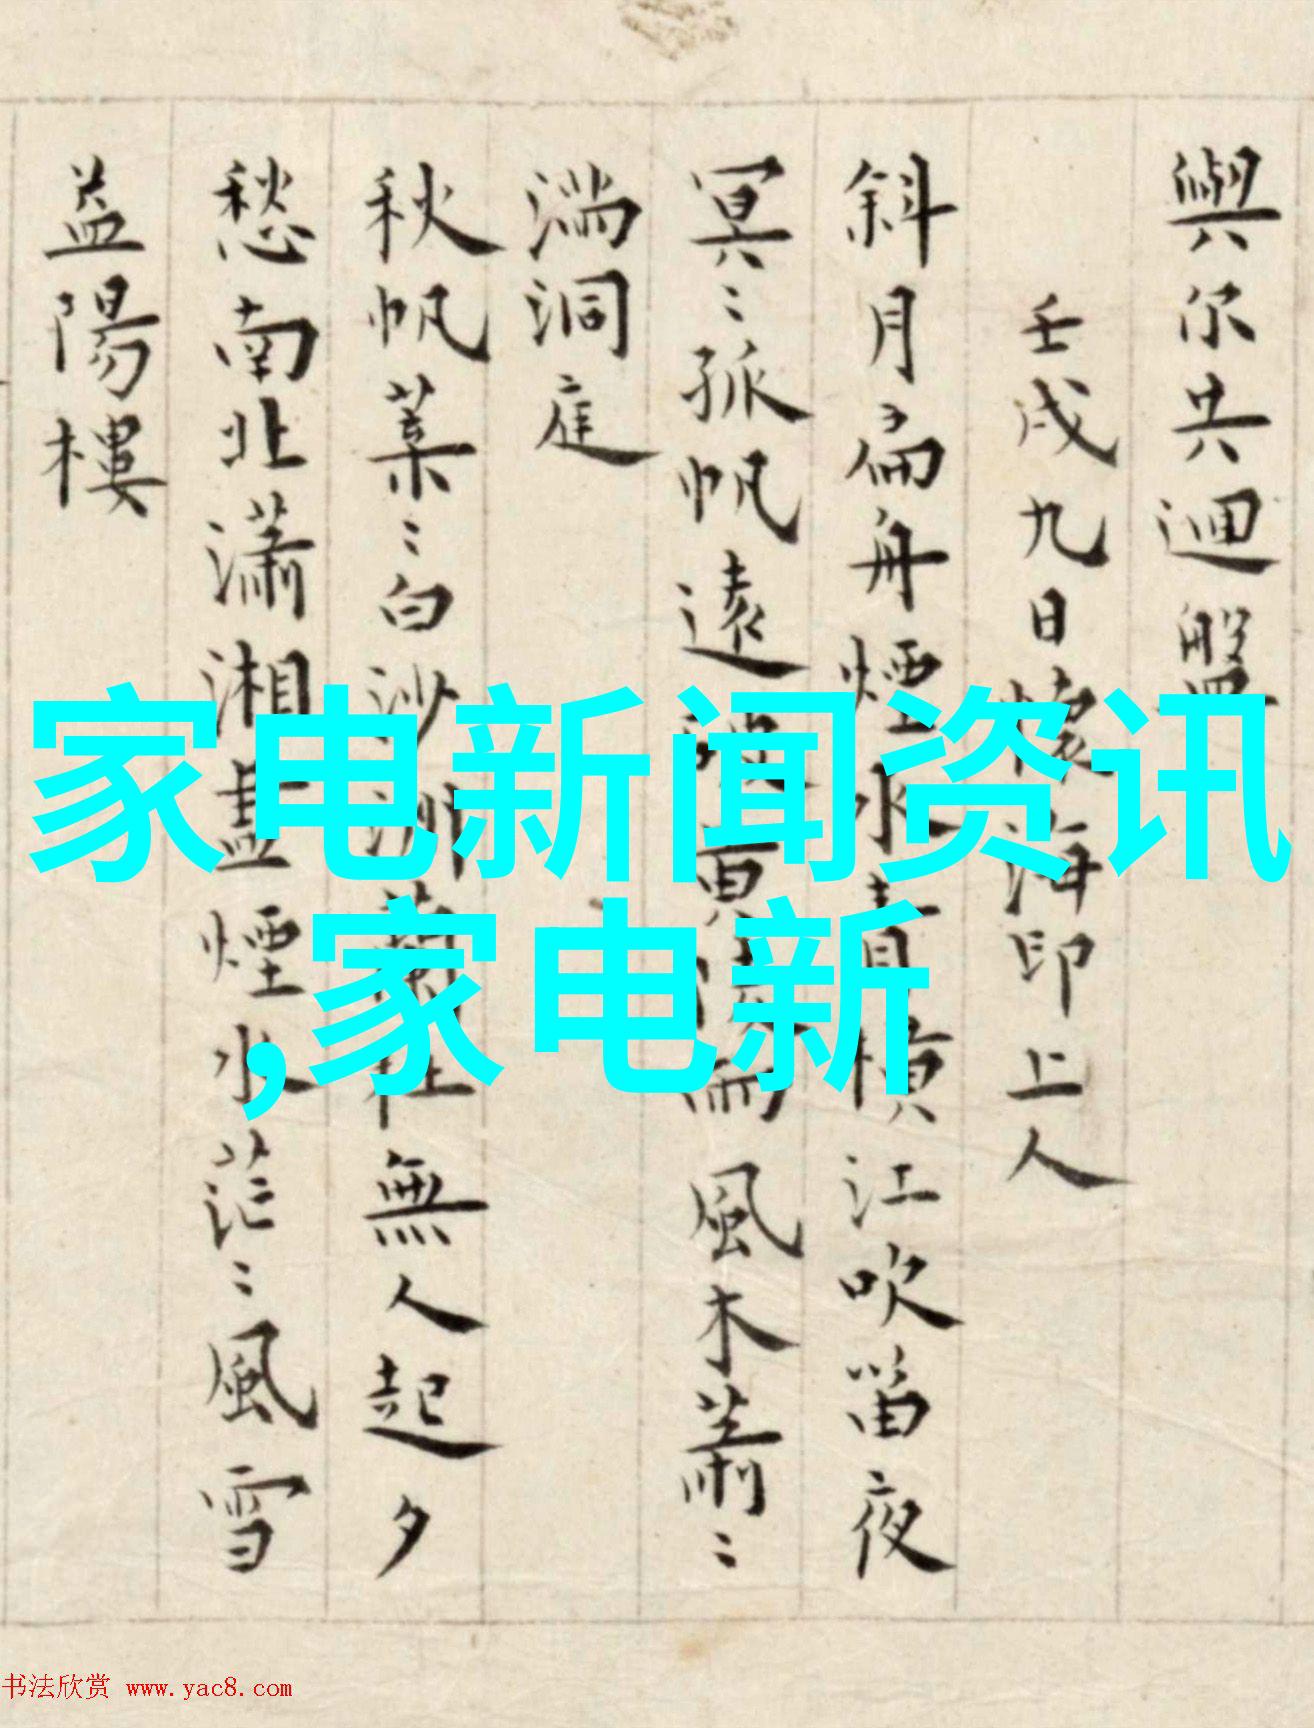 與尔共迴盤
壬戌九日懷海印上人
斜月扁舟煙水青橫江吹笛夜
冥〻孤帆遠 黃 風木蕭〻
湍洞庭
秋帆葉〻白沙 無人起夕
愁南北瀟湘盡煙水茫〻風雪
益陽樓
家电新闻资讯
,家电新
书法欣赏 www.yac8.com